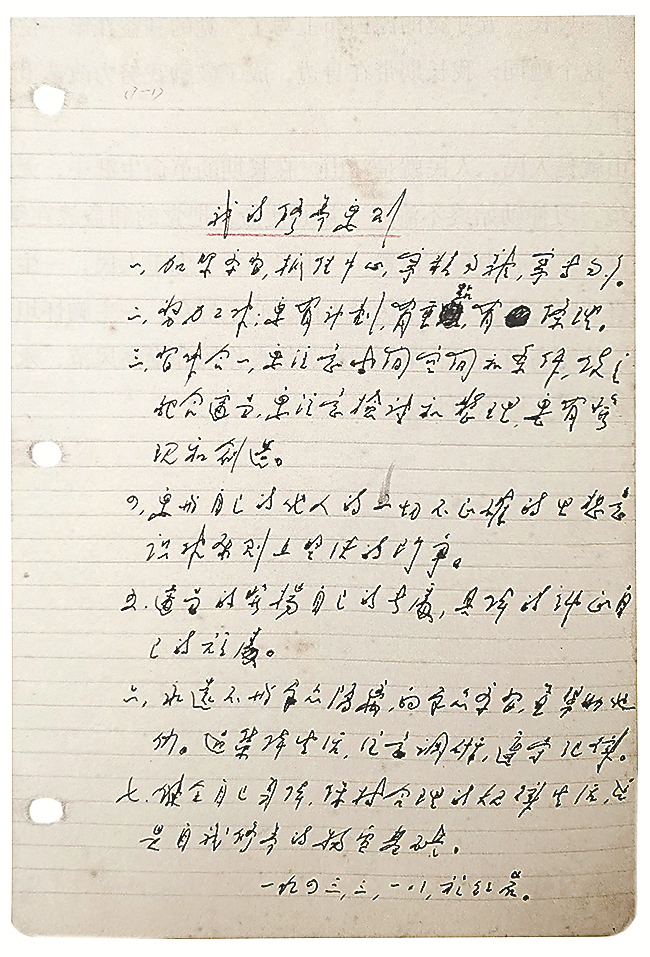 (7-1)
我的修养要则
一、加紧学习，抓住中心，宁精勿杂，宁专勿多。
二、努力工作，要有计划，有重點，有条理。
三、习作合一，要注意时间空间和条件，使之
配合適当，要注意检讨和整理，要有发
现和创造。
四、要与自己的他人的一切不正確的思想意
识作原则上坚决的斗争。
五、適当的发揚自己的長處，具体的纠正自
己的短處。
六、永远不与群众隔離，向群众学习，並帮助他
们。过集体生活，注意调研，遵守纪律。
七、健全自己身体，保持合理的规律生活，这
是自我修养的物质基础。
一九四三，三，一八，于红岩。